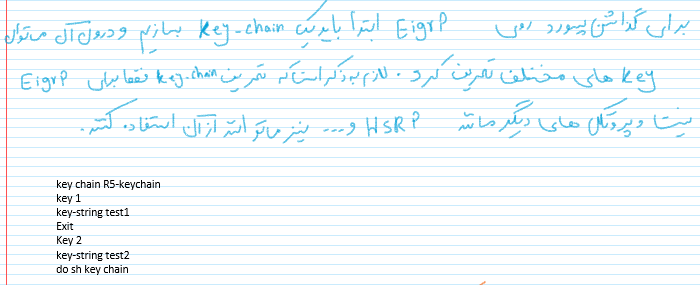 برای گذاشتن پسورد روی EigrP ابتدا باید یک key-chain بسازیم و درون آن می توان
key های مختلف تعریف کرد. لازم به ذکر است که تعریف key-chain فقط برای EigrP
نیست و پروتکل های دیگر مانند HSRP و... نیز می توانند از آن استفاده کنند.
key chain R5-keychain
key 1
key-string test1
Exit
Key 2
key-string test2
do sh key chain